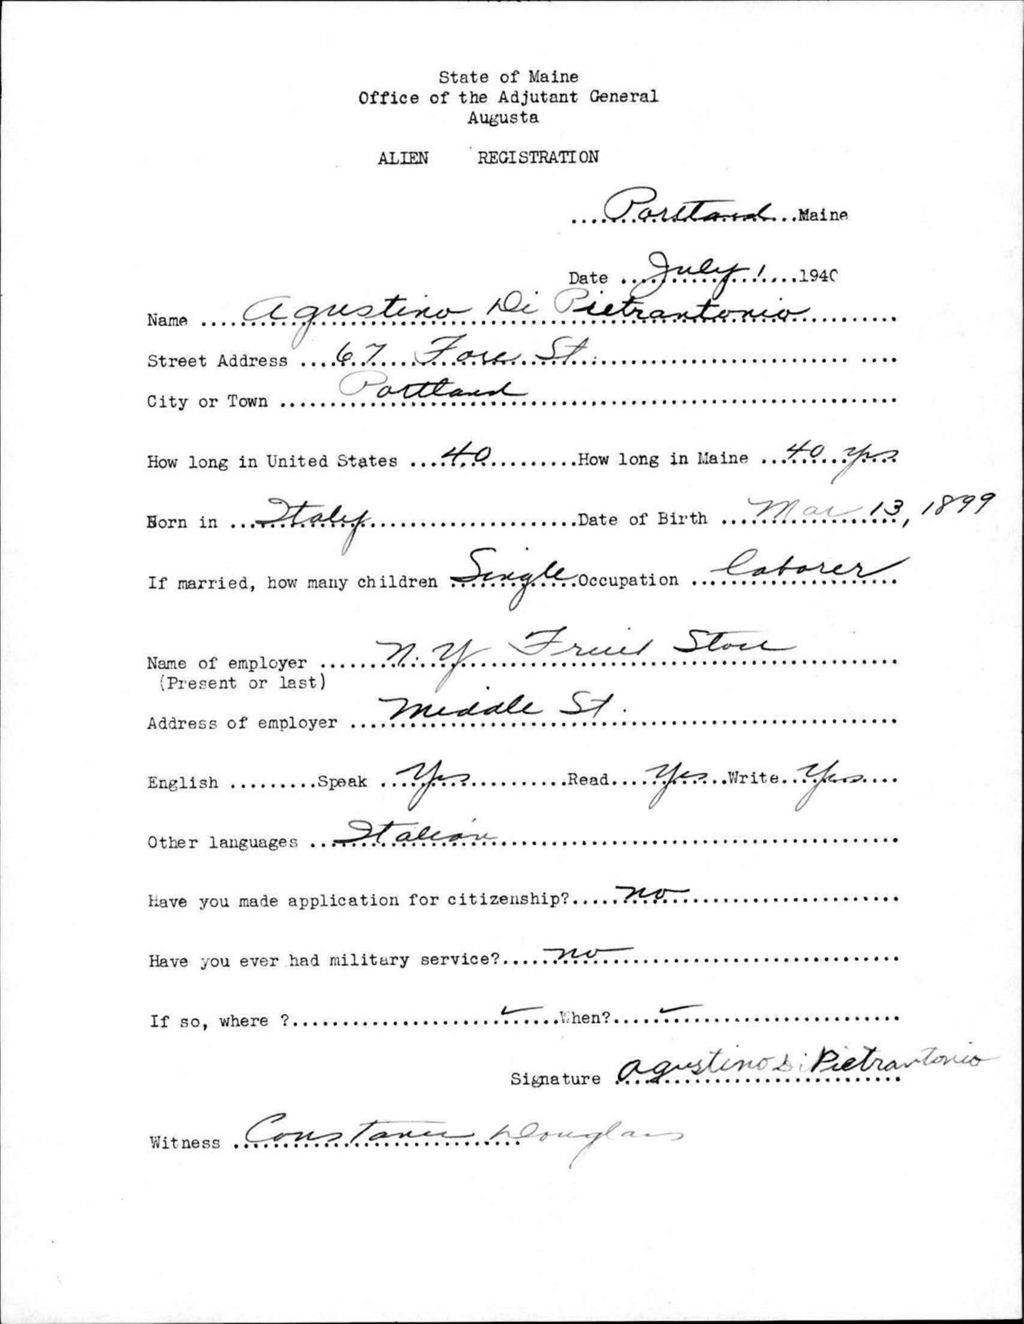 State of Maine
Office of the Adjutant General
Augusta
ALIEN REGISTRATION
Portland Maine
Date July 1 1940
Name Agustino Di Pietrantonio
Street Address 67 Fore St.
City or Town Portland
How long in United States 40 How long in Maine 40 yrs
Born in Italy Date of Birth Mar 13, 1899
If married, how many children Single Occupation laborer
Name of employer N. Y Fruit Store
(Present or last)
Address of employer Middle St.
English Speak Yes Read Yes Write Yes
Other languages Italian
Have you made application for citizenship? no
Have you ever had military service? no
If so, where ? ✓ When? ✓
Signature Agustino Di Pietrantonio
Witness Constance Douglass